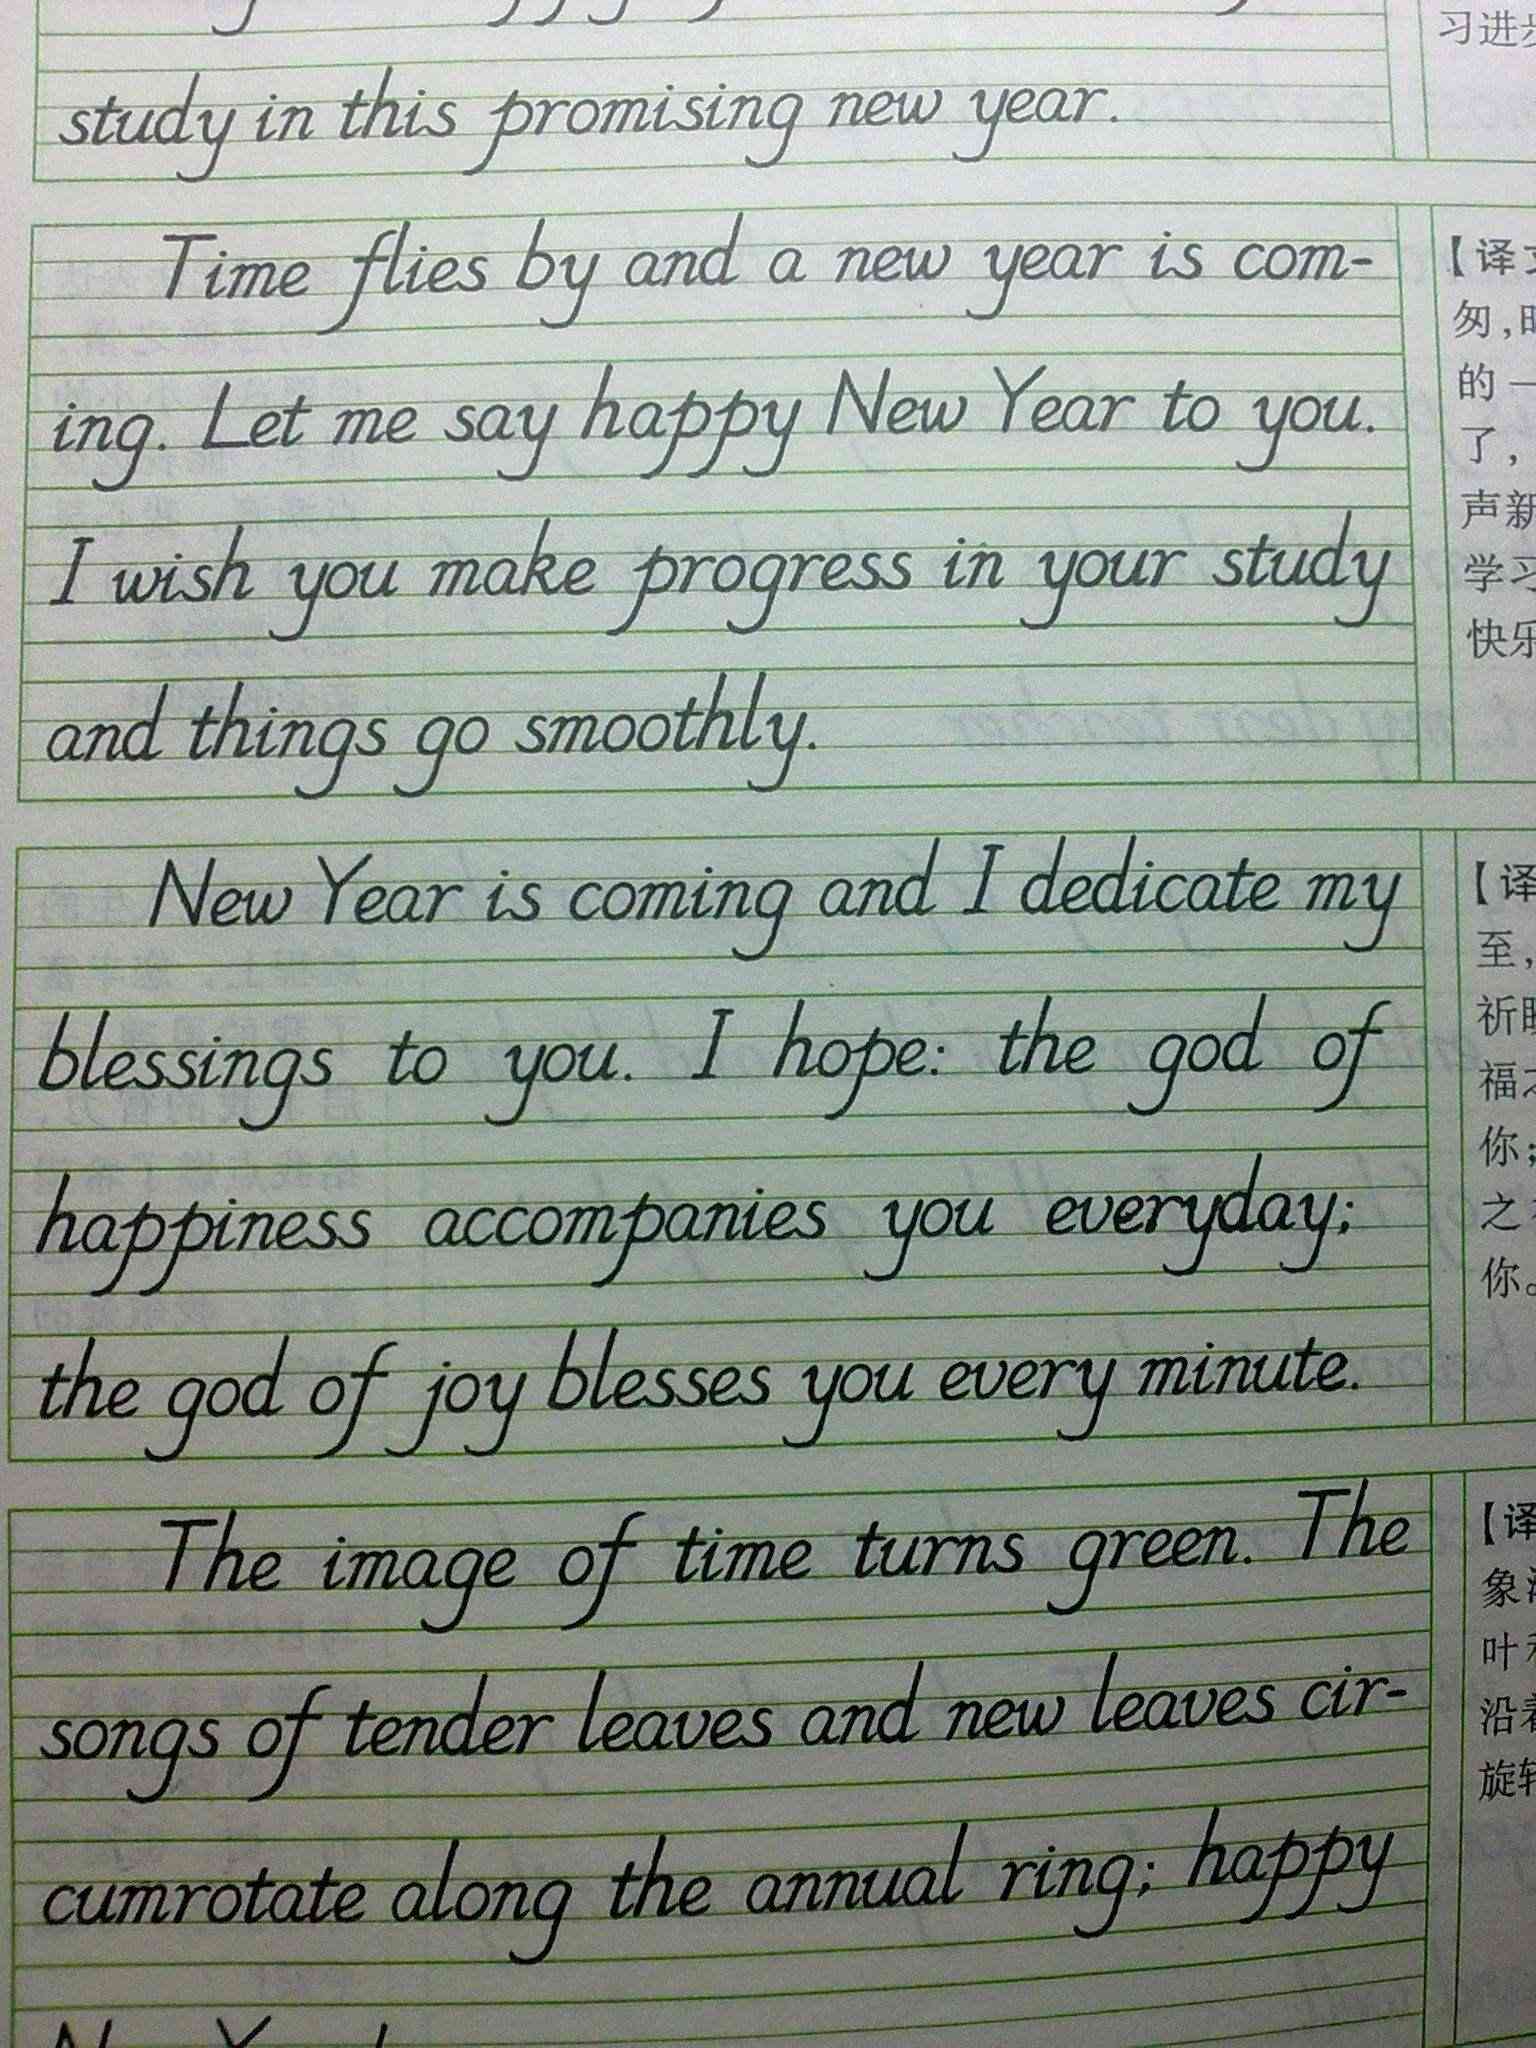 study in this promising new year.
Time flies by and a new year is com-
ing. Let me say happy New Year to you.
I wish you make progress in your study
and things go smoothly.
New Year is coming and I dedicate my
blessings to you. I hope: the god of
happiness accompanies you everyday;
the god of joy blesses you every minute.
The image of time turns green. The
songs of tender leaves and new leaves cir-
cumrotate along the annual ring; happy
习进
【译
匆,
的一
了,
声新
学习
快乐
【译
至,
祈
福
你;
之
你。
【译
象
叶
沿着
旋转